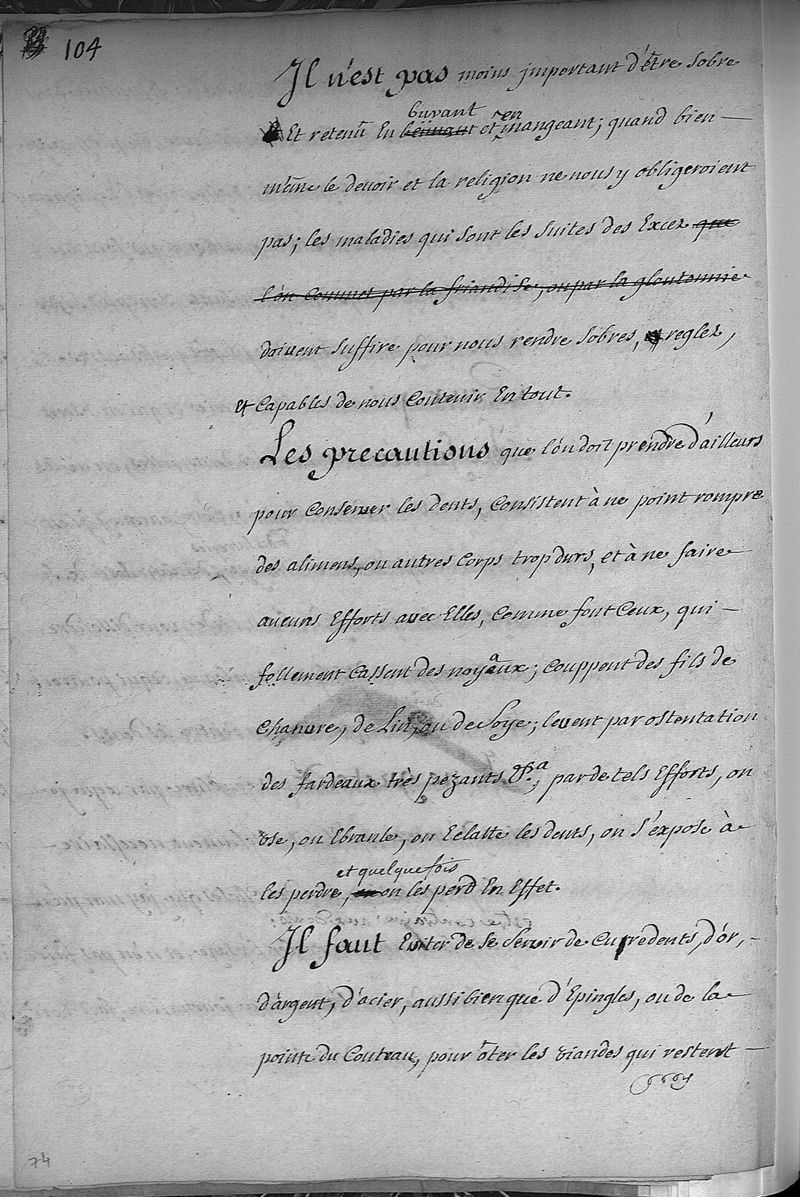 104
Il n'est pas moins important d'être sobre
buvant en
Et retenû En beüuant et mangeant; quand bien —
même le deuoir et la religion ne nous y obligeroient
pas; les maladies qui sont les suites des Excez que
l'on Commet par la friandise, ou par la gloutonnie
doiuent suffire pour nous rendre sobres, reglez,
et Capables de nous Contenir En tout.
Les precautions que l'on doit prendre d'ailleurs
pour Conseruer les dents, Consistent à ne point rompre
des alimens, ou autres Corps trop durs, et à ne faire
aucuns Efforts avec Elles, Comme font Ceux, qui —
follement Cassent des noyaux; Couppent des fils de
Chanure, de Lin, ou de Soye; leuent par ostentation
des fardeaux très pezants &a; par de tels Efforts, on
Vse, on Ebranle, on Eclatte les dents, on s'expose à
et quelque fois
les perdre, on les perd En Effet.
Il faut Euiter de se Seruir de Curedents, d'or, —
d'argent, d'acier, aussi bien que d'Epingles, ou de la
pointe du Couteau, pour ôter les viandes qui restent —
74